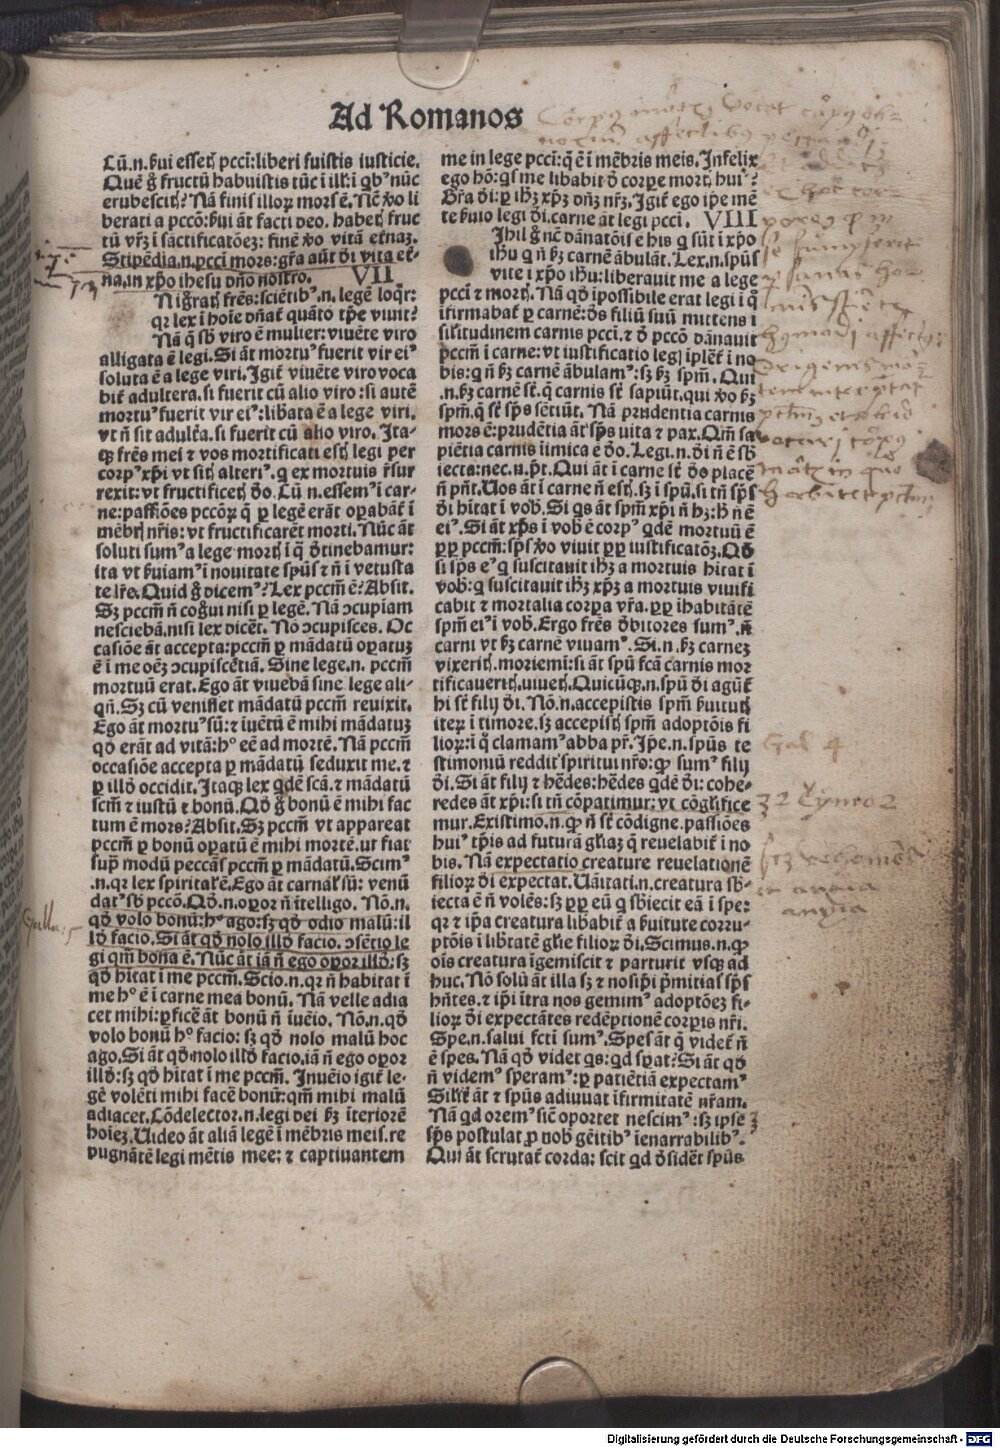 Ad Romanos
Cũ.n.ẜui essetꝭ pccī:liberi fuistis iusticie.
Quē g̊ fructū habuistis tūc ī ill:ī qbꝰ nūc
erubescitꝭ? Nā finis illoꝝ mors ē. Nc̄ ꝟo li
berati a pccō:ẜui āt facti deo. habetꝭ fruc
tū vr̄ꝫ ī sāctificatōeꝫ: finē ꝟo vitā et̄naꝫ.
Stipēdia.n.pcci mors:gr̄a aūt dī vita et̄
na.in xp̄o ihesu dn̄o nostro. VII
N igratꝭ frēs:sciētibꝰ.n.legē loq̄r:
qꝛ lex ī hoīe dn̄at̄ quāto tp̄e viuit?
Nā q̄ sb̄ viro ē mulier: viuēte viro
alligata ē legi. Si āt mortuꝰ fuerit vir eiꝰ
soluta ē a lege viri. Igit̄ viuēte viro voca
bit̄ adultera.si fuerit cū alio viro: si autē
mortuꝰ fuerit vir eiꝰ: lib̄ata ē a lege viri.
vt n̄ sit adult̄a.si fuerit cū alio viro. Ita-
qꝫ frēs mei ⁊ vos mortificati estꝭ legi per
corpꝰ xp̄i vt sitꝭ alteriꝰ.q ex mortuis r̄sur
rexit: vt fructificetꝭ do. Cū.n.essemꝰ ī car-
ne:passiōes pccōꝝ q̄ ꝑ legē erāt oꝑabāt̄ ī
mēbrꝭ nr̄is: vt fructificarēt morti. Nūc āt
soluti sumꝰ a lege mortꝭ ī q̄ detinebamur:
ita vt ẜuiamꝰ ī nouitate spūs ⁊ n̄ ī vetusta
te lr̄e. Quid g̊ dicemꝰ? Lex pccm̄ ē? Absit.
Sꝫ pccm̄ n̄ cogui nisi ꝑ legē. Nā ↄcupiam
nesciebā.nisi lex dicēt. Nō ↄcupisces. Oc
casiōe āt accepta:pccm̄ ꝑ mādatū oꝑatuꝫ
ē ī me oēꝫ ↄcupiscētiā. Sine lege.n. pccm̄
mortuū erat. Ego āt viuebā sine lege ali-
qn̄. Sꝫ cū venisset mādatū pccm̄ reuixit.
Ego āt mortuꝰ sū: ⁊ iuētū ē mihi mādatuꝫ
qd̄ erāt ad vitā: hͦ eē ad mortē. Nā pccm̄
occasiōe accepta ꝑ mādatū seduxit me.⁊
ꝑ illd̄ occidit. Itaqꝫ lex qdē scā.⁊ mādatū
scm̄ ⁊ iustū ⁊ bonū. Qd̄ g̊ bonū ē mihi fac
tum ē mors? Absit. Sꝫ pccm̄ vt appareat
pccm̄ ꝑ bonū oꝑatū ē mihi mortē.ut fiat
sup̄ modū peccās pccm̄ ꝑ mādatū. Scimꝰ
.n.qꝛ lex spiritalꝭ ē. Ego āt carnalꝭ sū: venū
datꝰ sb̄ pccō. Qd̄.n.oꝑor n̄ ītelligo. Nō.n.
qd̄ volo bonū: hͦ ago: sꝫ qd̄ odio malū: il
ld̄ facio. Si āt qd̄ nolo illd̄ facio. ↄsētio le
gi qm̄ bona ē. Nūc āt iā n̄ ego oꝑor illd̄: sꝫ
qd̄ hītat ī me pccm̄. Scio.n.qꝛ n̄ habitat ī
me hͦ ē ī carne mea bonū. Nā velle adia
cet mihi: ꝑficē āt bonū n̄ īuēio. Nō.n.qd̄
volo bonū hͦ facio: sꝫ qd̄ nolo malū hoc
ago. Si āt qd̄ nolo illd̄ facio.iā n̄ ego oꝑor
illd̄: sꝫ qd̄ hītat ī me pccm̄. Inuēio igit̄ le-
gē volēti mihi facē bonū: qm̄ mihi malū
adiacet. Cōdelector.n.legi dei ẜꝫ īteriorē
hoīeꝫ. Uideo āt aliā legē ī mēbris meis.re
pugnātē legi mētis mee: ⁊ captiuantem
me in lege pccī: q̄ ē ī mēbris meis. Infelix
ego hō: qs me libabit d̄ corpe mortꝭ huiꝰ?
Gr̄a dī: ꝑ ihꝫ xp̄ꝫ dn̄ꝫ nr̄ꝫ. Igit̄ ego ip̄e mē
te ẜuio legi dī. carne āt legi pcci. VIII
Ihil g̊ nc̄ dānatōis ē his q sūt ī xp̄o
ihu q n̄ ẜꝫ carnē ābulāt. Lex.n.spūs
vite ī xp̄o ihu: liberauit me a lege
pccī ⁊ mortꝭ. Nā qd̄ īpossibile erat legi ī q̄
īfirmabat̄ ꝑ carnē: ds filiū suū mittens ī
silitudinem carnis pcci.⁊ d̄ pccō dānauit
pccm̄ ī carne: vt iustificatio legꝭ īplēt̄ ī no
bis: q n̄ ẜꝫ carnē ābulamꝰ: sꝫ ẜꝫ spm̄. Qui
.n.ẜꝫ carnē st̄. q carnis st̄ sapiūt. qui ꝟo ẜꝫ
spm̄. q̄ st̄ sp̄s sētiūt. Nā prudentia carnis
mors ē: prudētia āt sp̄s uita ⁊ pax. Qm̄ sa
piētia carnis īimica ē do. Legi.n.dī n̄ ē sb̄
iecta: nec.n.pt̄. Qui āt ī carne st̄ do placē
n̄ pn̄t. Uos āt ī carne n̄ estꝭ. sꝫ ī spū. si tn̄ sp̄s
dī hītat ī vob. Si qs āt spm̄ xp̄i n̄ hꝫ: h̄ n̄ ē
eiꝰ. Si āt xp̄s ī vob ē corpꝰ qdē mortuū ē
ꝓp pccm̄: sp̄s ꝟo viuit ꝓp iustificatōꝫ. Qd̄
si sp̄s eꝰ q suscitauit ihꝫ a mortuis hītat ī
vob: q suscitauit ihꝫ xp̄ꝫ a mortuis viuifi
cabit ⁊ mortalia corpa vr̄a. ꝓp īhabitātē
spm̄ eiꝰ ī vob. Ergo frēs debitores sumꝰ. n̄
carni vt ẜꝫ carnē viuamꝰ. Si.n.ẜꝫ carneꝫ
vixeritꝭ. moriemī: si āt spū fcā carnis mor
tificaueritꝭ. viuetꝭ. Quicūqꝫ.n.spū dī agūt̄
hi st̄ filij dī. Nō.n.accepistis spm̄ ẜuitutꝭ
iteꝝ ī timore. sꝫ accepistꝭ spm̄ adoptōis fi
lioꝝ: ī q̄ clamamꝰ abba pr̄. Ip̄e.n.spūs te
stimoniū reddit spiritui nr̄o: qꝙ sumꝰ filij
dī. Si āt filij ⁊ hēdes: hēdes qdē dī: cohe-
redes āt xp̄i: si tn̄ cōpatimur: vt cōglifice
mur. Existimo.n.ꝙ n̄ st̄ cōdigne passiōes
huiꝰ tp̄is ad futurā gl̄iaꝫ q̄ reuelabit̄ ī no
bis. Nā expectatio creature reuelationē
filioꝝ dī expectat. Uāitati.n.creatura sb̄-
iecta ē n̄ volēs: sꝫ ꝓp eū q sb̄iecit eā ī spe:
qꝛ ⁊ ip̄a creatura libabit̄ a ẜuitute corru-
ptōis ī lib̄tatē gl̄ie filioꝝ dī. Scimus.n.ꝙ
ois creatura īgemiscit ⁊ parturit vsqꝫ ad
huc. Nō solū āt illa sꝫ ⁊ nosip̄i p̄mitias sp̄s
hn̄tes.⁊ ip̄i ītra nos gemimꝰ adoptōeꝫ fi-
lioꝝ dī expectātes redēptionē corpis nr̄i.
Spe.n.salui fcti sumꝰ. Spes āt q̄ videt̄ n̄
ē spes. Nā qd̄ videt qs: qd sꝑat? Si āt qd̄
n̄ videmꝰ speramꝰ: ꝑ patiētiā expectamꝰ
Silit̄ āt ⁊ spūs adiuuat īfirmitatē nr̄am.
Nā qd oremꝰ sic̄ oportet nescimꝰ: sꝫ ipse
sp̄s postulat ꝓ nob gēitibꝰ īenarrabilibꝰ.
Qui āt scrutat̄ corda: scit qd desidēt spūs
Gal 4
Digitalisierung gefördert durch die Deutsche Forschungsgemeinschaft - DFG